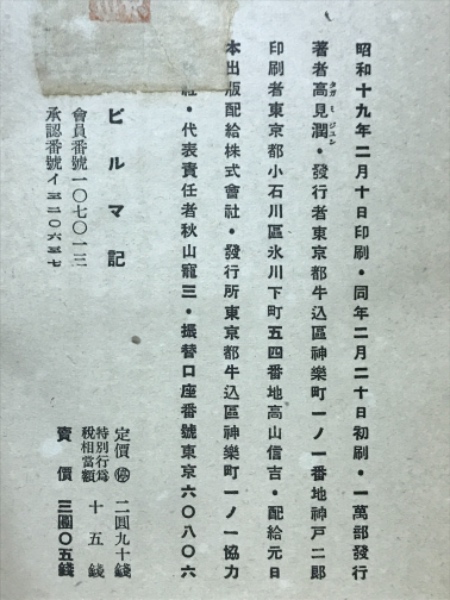 昭和十九年二月十日印刷・同年二月二十日初刷・一萬部發行
著者高見潤・發行者東京都牛込區神樂町一ノ一番地神戸二郎
タカ ミ ジユン
印刷者東京都小石川區氷川下町五四番地高山信吉・配給元日
本出版配給株式會社・發行所東京都牛込區神樂町一ノ一協力
社・代表責任者秋山寵三・振替口座番號東京六〇八〇六
ビルマ記
會員番號一〇七〇一三
承認番號イ三二〇六三七
定價 停 二圓九十錢
特別行爲
税相當額 十五錢
賣價 三圓〇五錢